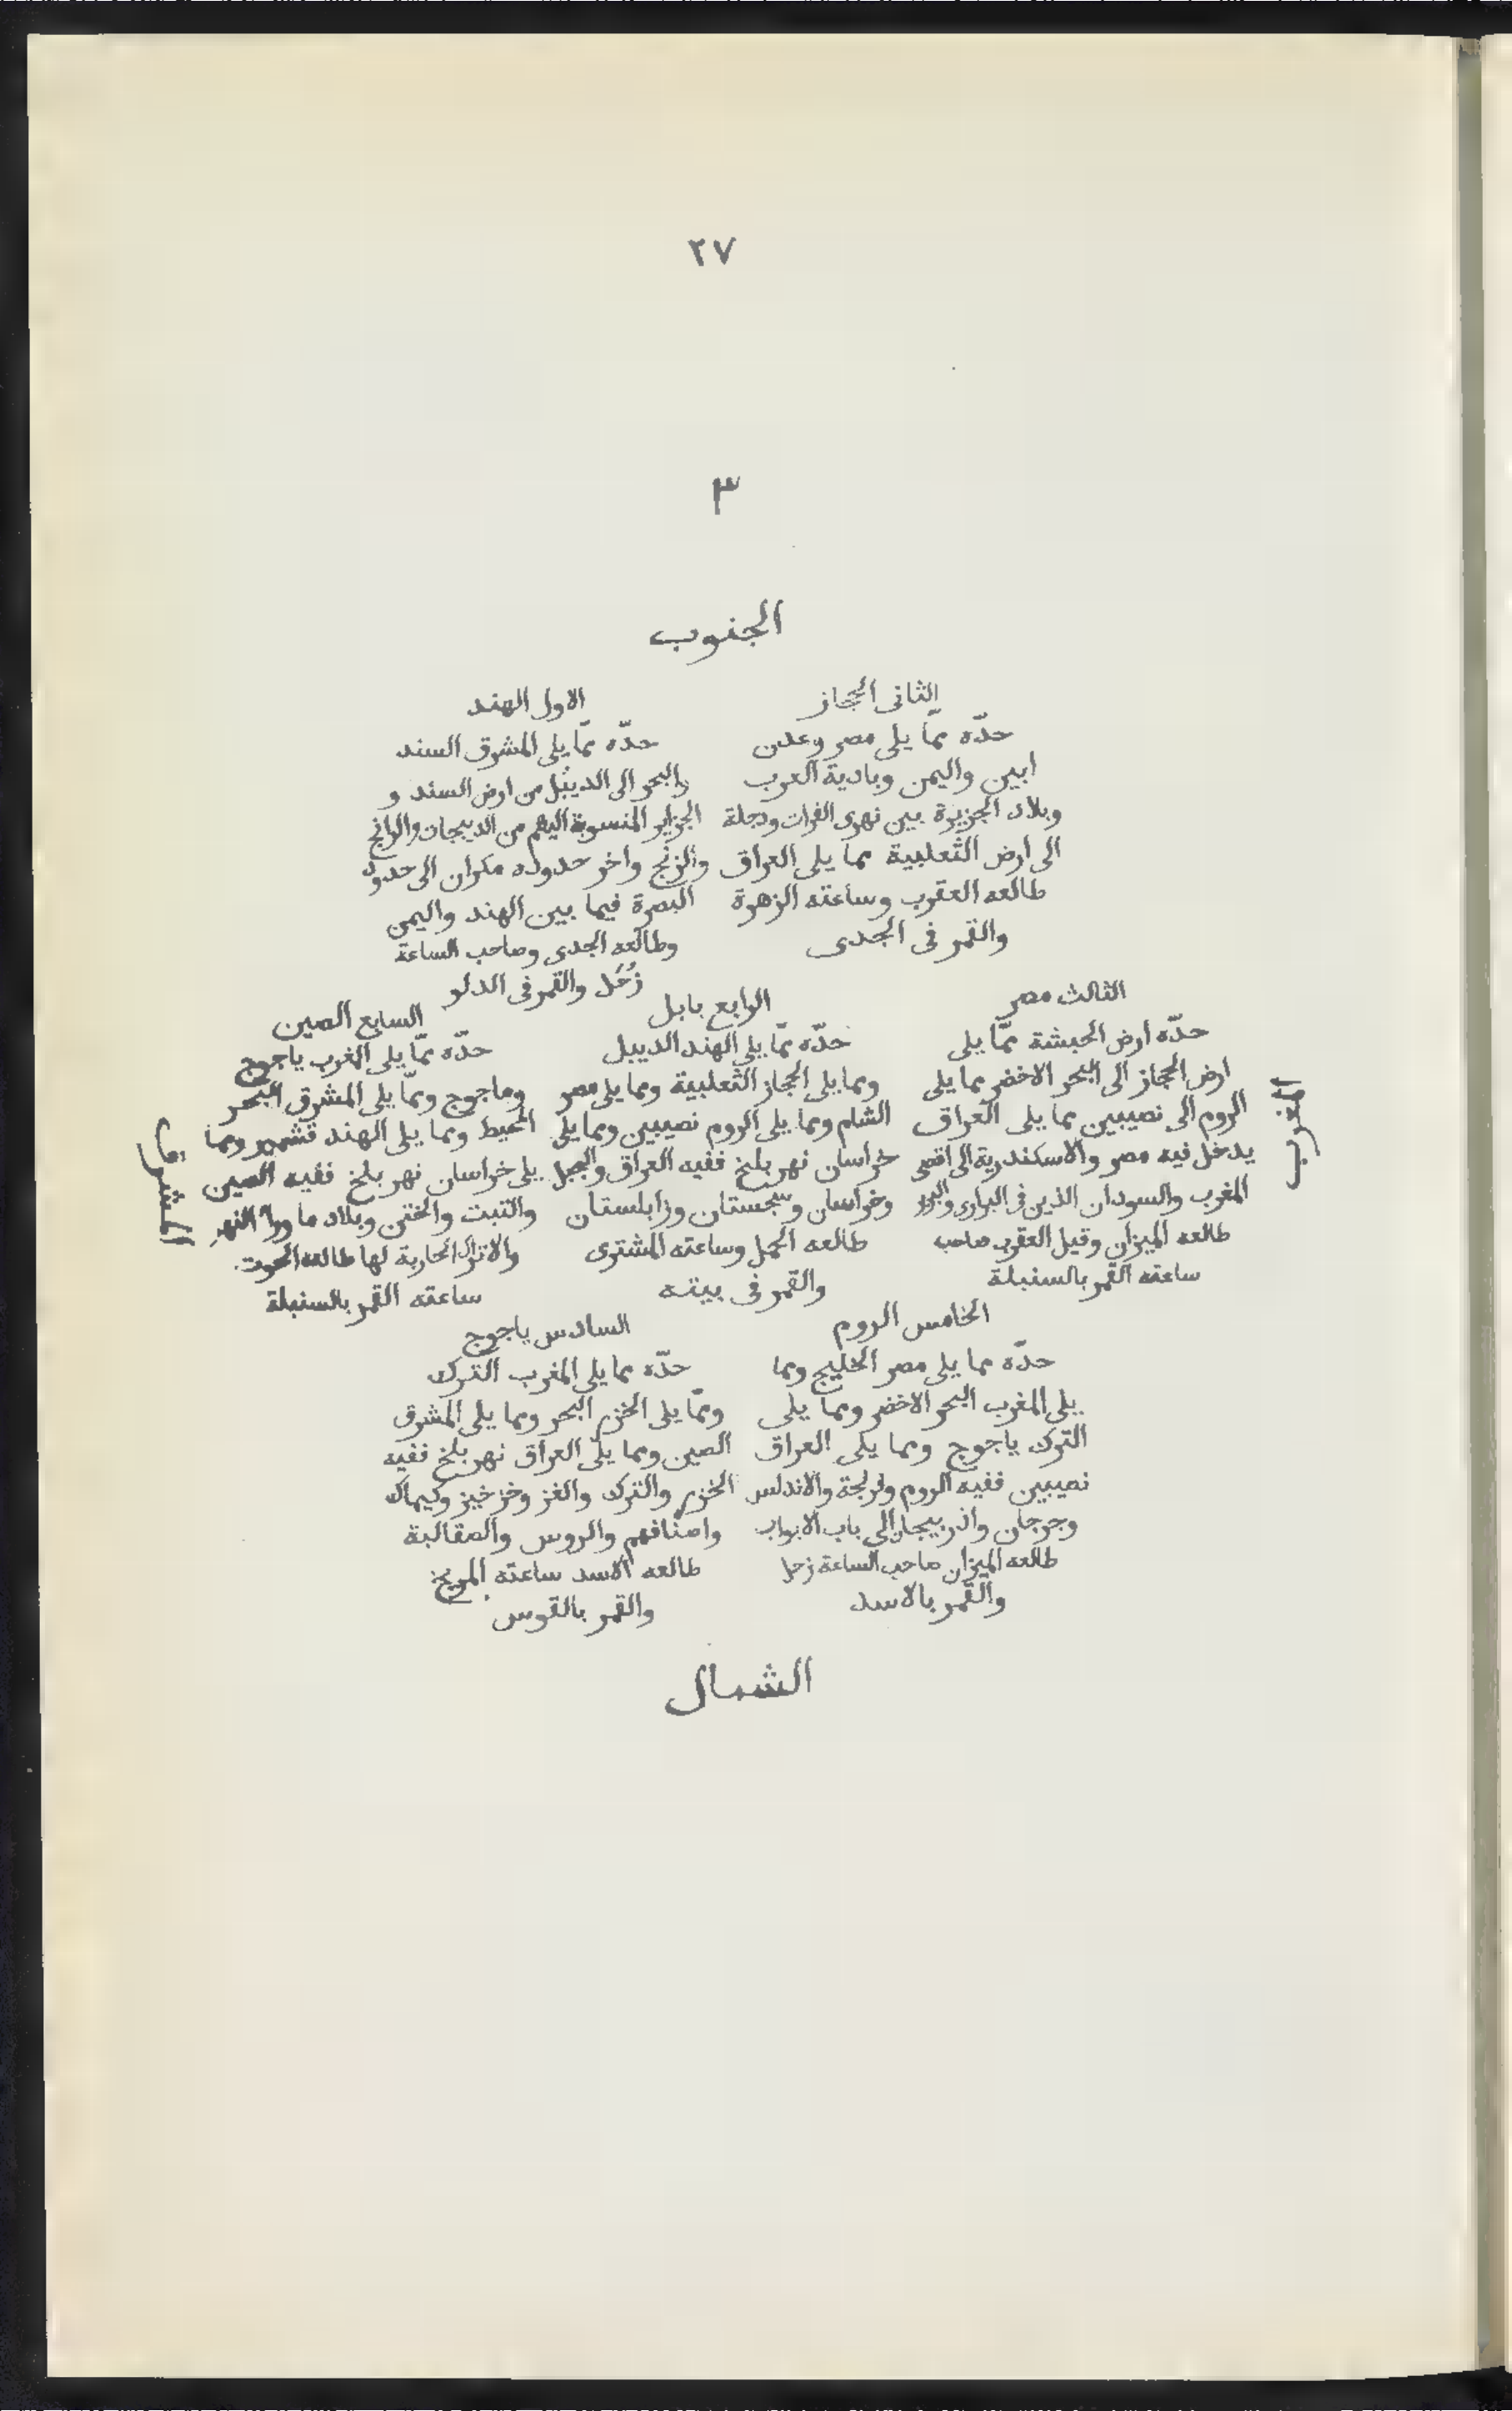 ٢٧
٣
الجنوب
الثانى الحجاز
حدّه ممّا يلى مصر وعدن
ابين واليمن وبادية العرب
وبلاد الجزيرة بين نهرى الفرات ودجلة
الى ارض الثعلبية مما يلى العراق
طالعه العقرب وساعته الزهرة
والقمر فى الجدى
الاول الهند
حدّه ممّا يلى المشرق السند
والبحر الى الديبل من ارض السند و
الجزاير المنسوبة اليهم من الديبجات والرانج
والزنج واخر حدوده مكران الى حدود
البصرة فيما بين الهند واليمن
وطالعه الجدى وصاحب الساعة
زُحَل والقمر فى الدلو
المغرب
الثالث مصر
حدّه ارض الحبشة ممّا يلى
ارض الحجاز الى البحر الاخضر مما يلى
الروم الى نصيبين مما يلى العراق
يدخل فيه مصر والاسكندرية الى اقصى
المغرب والسودان الذين فى البرارى
طالعه الميزان وقيل العقرب صاحب
ساعته القمر بالسنبلة
الرابع بابل
حدّه ممّا يلى الهند الديبل
ومما يلى الحجاز الثعلبية ومما يلى مصر
الشام ومما يلى الروم نصيبين ومما يلى
خراسان نهر بلخ ففيه العراق والجبل
وخراسان وسجستان وزابلستان
طالعه الحمل وساعته المشترى
والقمر فى بيته
السابع الصين
حدّه ممّا يلى الغرب ياجوج
وماجوج وممّا يلى المشرق البحر
المحيط ومما يلى الهند قشمير ومما
يلى خراسان نهر بلخ ففيه الصين
والتبت والختن وبلاد ما ورا النهر
والاتراك المحاربة لها طالعه الحوت
ساعته القمر بالسنبلة
المشرق
الخامس الروم
حدّه مما يلى مصر الخليج ومما
يلى المغرب البحر الاخضر ومما يلى
الترك ياجوج ومما يلى العراق
نصيبين ففيه الروم وفرنجة والاندلس
وجرجان واذربيجان الى باب الابواب
طالعه الميزان صاحب الساعة زحل
والقمر بالاسد
السادس ياجوج
حدّه مما يلى المغرب الترك
وممّا يلى الخزر البحر ومما يلى المشرق
الصين ومما يلى العراق نهر بلخ ففيه
الخزر والترك والغز وخرخيز وكيماك
واصنافهم والروس والصقالبة
طالعه الاسد ساعته المريخ
والقمر بالقوس
الشمال